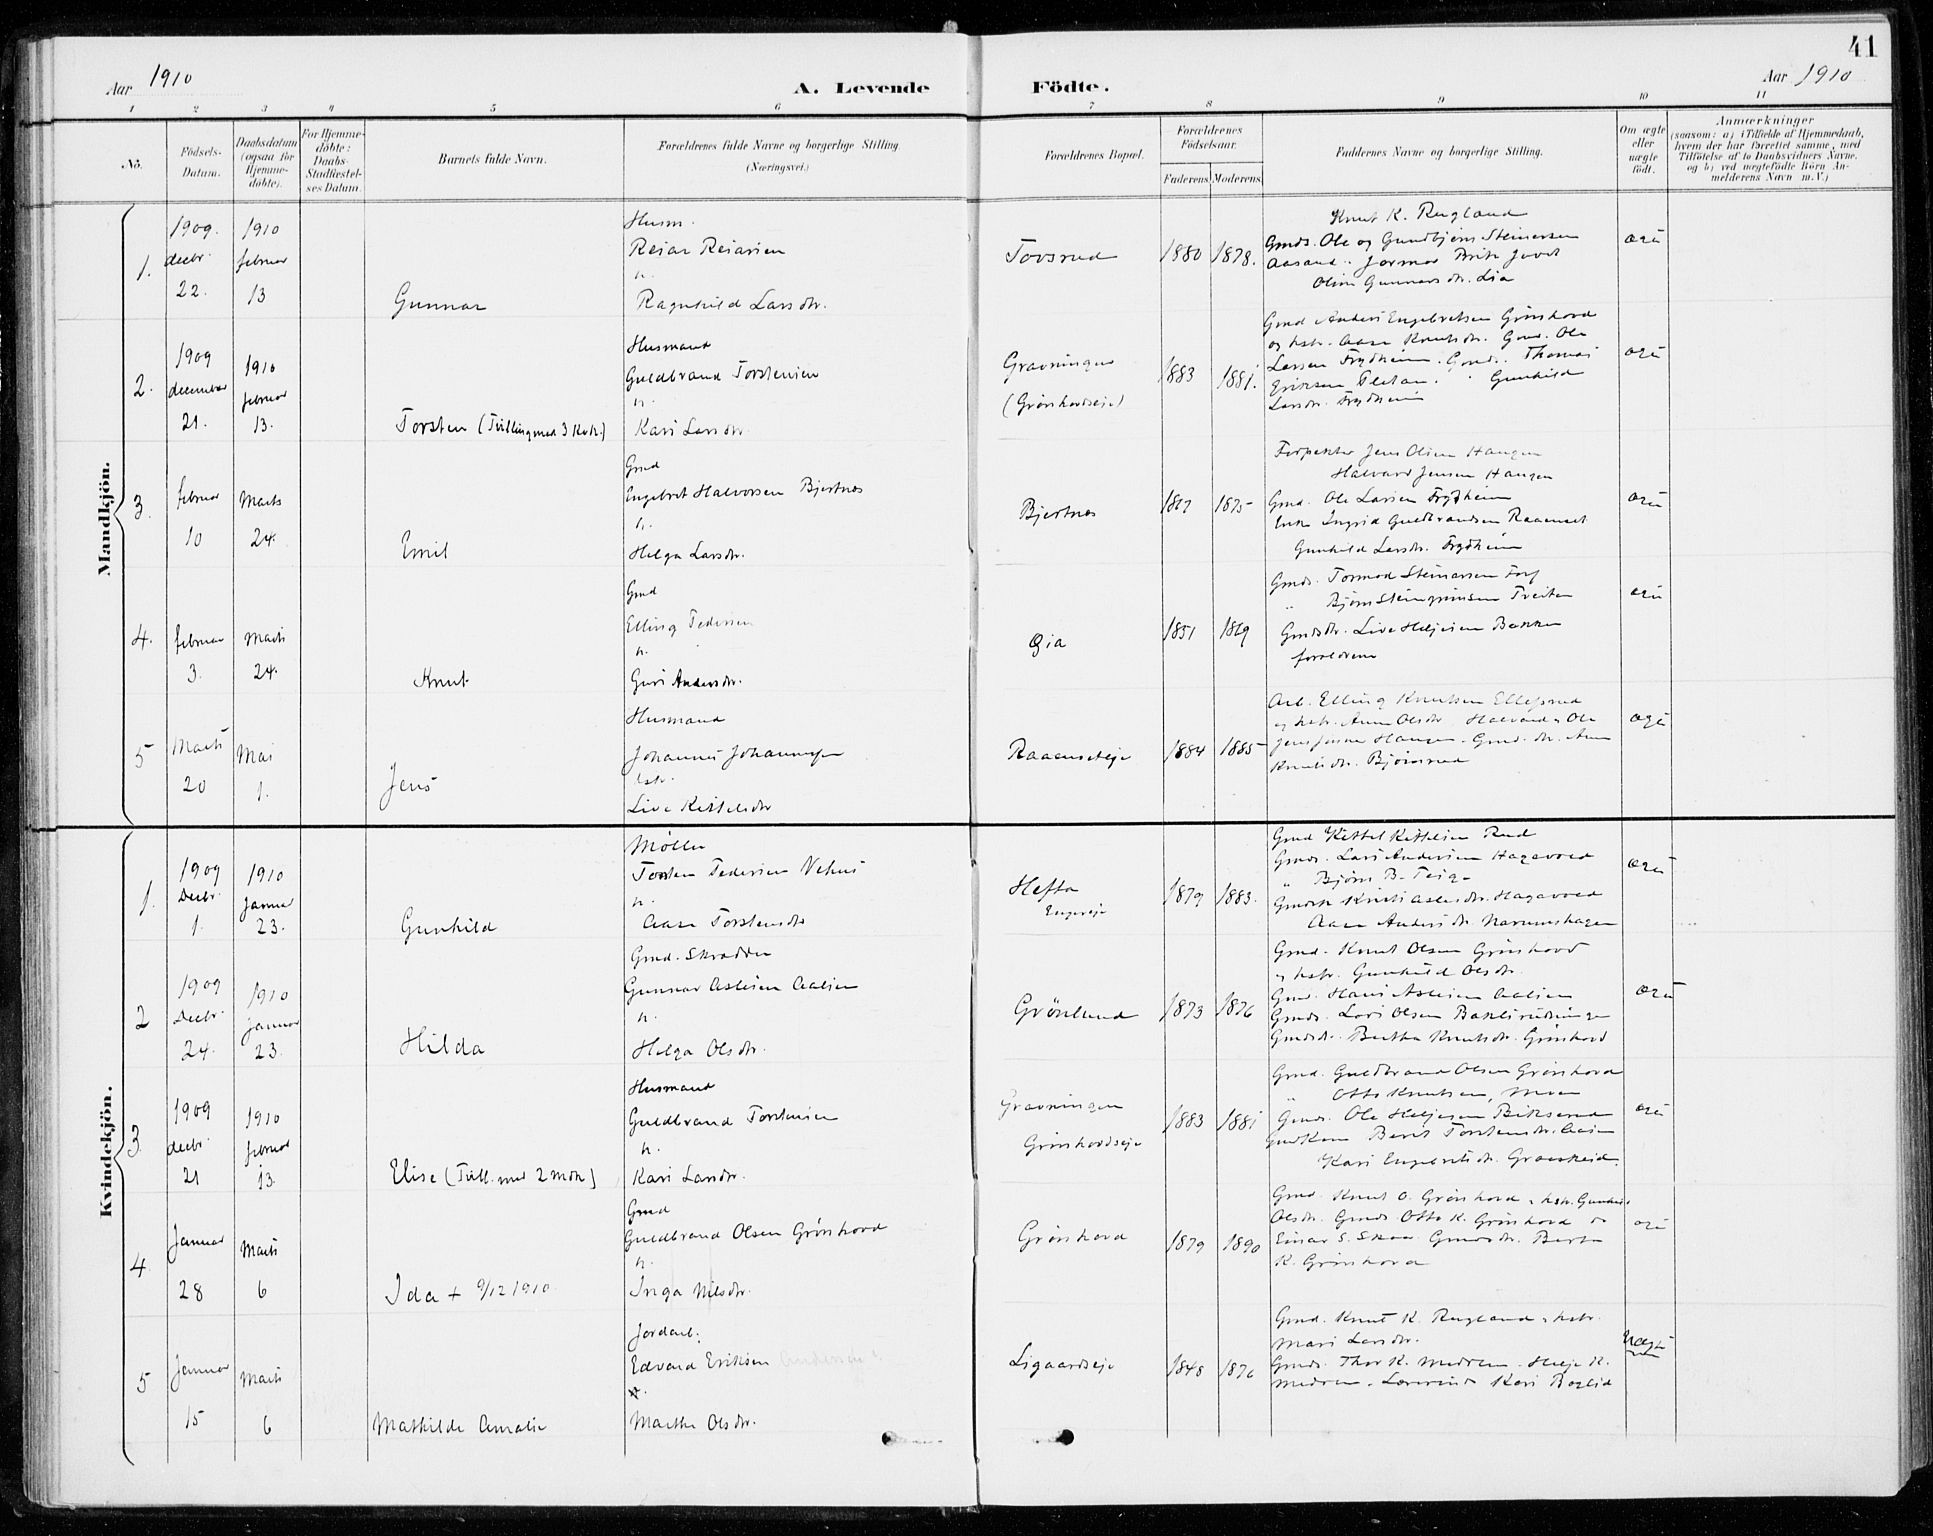 41
Aar 1910
A. Levende Födte.
Aar 1910
1 2 3 4 5 6 7 8 9 10 11
No.
Födsels-Datum.
Daabsdatum (ogsaa for Hjemme-döbte).
For Hjemme-döbte: Daabs-Stadfæstel-ses Datum.
Barnets fulde Navn.
Forældrenes fulde Navne og borgerlige Stilling
(Næringsvei.)
Forældrenes Bopæl.
Forældrenes Födselsaar.
Faderens Moderens
Faddernes Navne og borgerlige Stilling.
Om ægte eller uægte födt.
Anmærkninger
(saasom: a) i Tilfælde af Hjemmedaab,
hvem der har forrettet samme, med
Tilföielse af to Daabsvidners Navne.
og b) ved uægtefödte Börn An-
melderens Navn m. V.)
Mandkjön.
1. 1909. decbr. 22. 1910 februar 13
Gunnar
Husm.
Reiar Reiarsen
h.
Ragnhild Larsdtr.
Tovsrud 1880 1878.
Knut K. Rugland
Gmds. Ole og Gundbjørn Steinarsen
Aasand
Oline Gunnarsdtr. Lia
ægte
2. 1909 december 21. 1910 februar 13.
Torsten (Tvilling med 3 Kvk.)
Husmand
Guldbrand Torstensen
h.
Kari Larsdtr.
Gravningen
(Grønhovdseje)
1883 1881.
Gmd Anders Engebretsen Grønhovd
og hstr. Aase Knutsdtr. Gmd. Ole
Larsen Frydheim. Gmds. Thomas
Eriksen Flatan. Gunhild
Larsdtr. Frydheim
ægte
3. februar 10 Marts 24.
Emil
Gmd
Engebret Halvorsen Bjertnes
h.
Helga Larsdtr.
Bjertnes 1867 1875
Forpakter Jens Olsen Haugen
Halvard Jensen Haugen
Gmd. Ole Larsen Frydheim
Enke Ingrid Guldbrandsen Raaenset
Gunhild Larsdtr. Frydheim
ægte
4. februar 3. Marts 24.
Knut
Gmd
Elling Pedersen
h.
Guri Andersdtr.
Gia 1851 1869
Gmds. Tormod Steinarsen
" Bjørn Steingrimsen Treiten
Gmdsdtr. Live Heljesen Bakken
forældrene
ægte
5 Marts 20 Mai 1.
Jens
Husmand
Johannes Johannesen
hstr.
Live Kittelsdtr
Raaenseteje 1884 1885
Arb. Elling Knutsen Ellefsrud
og hstr. Anne Olsdtr. Halvard, Ole
Haugen. Gmd. dtr. Anne
Knutsdtr. Bjørnsrud
ægte
Kvindekjön.
1. 1909 Decbr. 1. 1910 januar 23.
Gunhild
Møller
Torsten Pedersen Vehus
h.
Aase Torstensdtr
Hefta
Engereje
1879 1883.
Gmd Kittel Kittelsen Rud
Gmds. Lars Andersen Hagavold
" Bjørn B. Teige
Kristi Aslesdtr. Hagavold
Aase Andersdtr. Narumshagen
ægte
2 1909 Decbr. 24. 1910 januar 23.
Hilda
Gmd. Skrædder
Gunnar Aslesen Aalien
h.
Helga Olsdtr.
Grönlund 1873 1876
Gmd. Knut Olsen Grønhovd
og hstr. Gunhild Olsdtr.
Gmd. Hans Aslesen Aalien
Gmds. Lars Olsen
Gmdsdtr. Bertha Knutsdtr. Grønhovd
ægte
3. 1909 decbr. 21 1910 februar 13.
Elise (Tvill. med 2 Mdk.)
Husmand
Guldbrand Torstensen
h.
Kari Larsdtr.
Gravningen
Grønhovdseje
1883 1881
Gmd. Guldbrand Olsen Grønhovd
" Otto Knutsen, Moen
Gmds. Ole Heljesen
Berit Torstensdtr.
Kari Engebretsdtr.
ægte
4. Januar 28 Marts 6
Ida + 9/12 1910.
Gmd
Guldbrand Olsen Grønhovd
h.
Inga Nilsdtr.
Grønhovd 1879 1890
Gmd. Knut O. Grønhovd, hstr. Gunhild
Olsdtr. Gmds. Otto K. Grønhovd
Einar S. Skaa Gmdsdtr. Berta
K. Grønhovd
ægte
5 Januar 15 Marts 6
Mathilde Amalie
Jordarb.
Edvard Eriksen
Marthe Olsdtr.
Ligaardseje 1848 1876
Gmd. Knut K. Rugland, hstr.
Mari Larsdtr.
Gmds. Thor K. Medren. Helje K.
Medren. Kari Baglid
Uægte